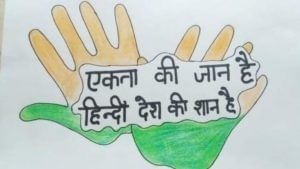 एकता की जान है
हिन्दी देश की शान है